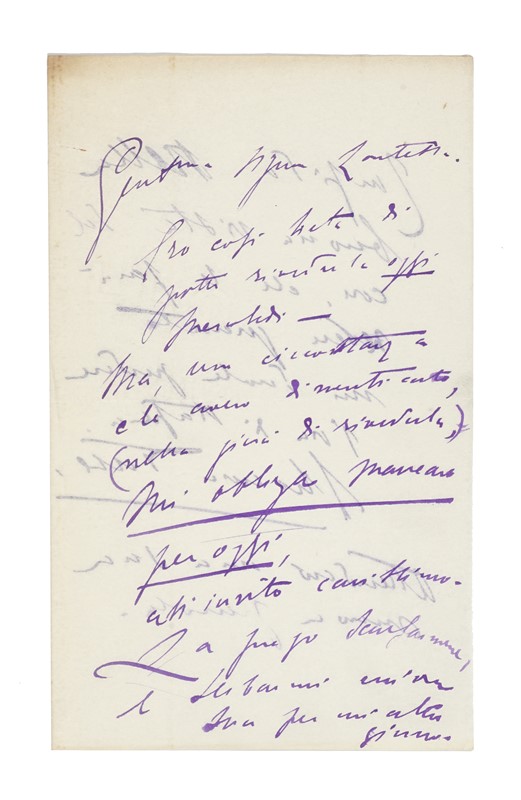 Gentma Signa Contessa.
Ero così lieta di
poter rivederla oggi
mercoledì —
Ma, una circostanza
che avevo dimenticata,
(nella gioia di rivederla,)
mi obbliga mancare
per oggi,
all'invito carissimo.
La prego scusarmene,
e serbarmi ancora
ma per un altro
giorno.